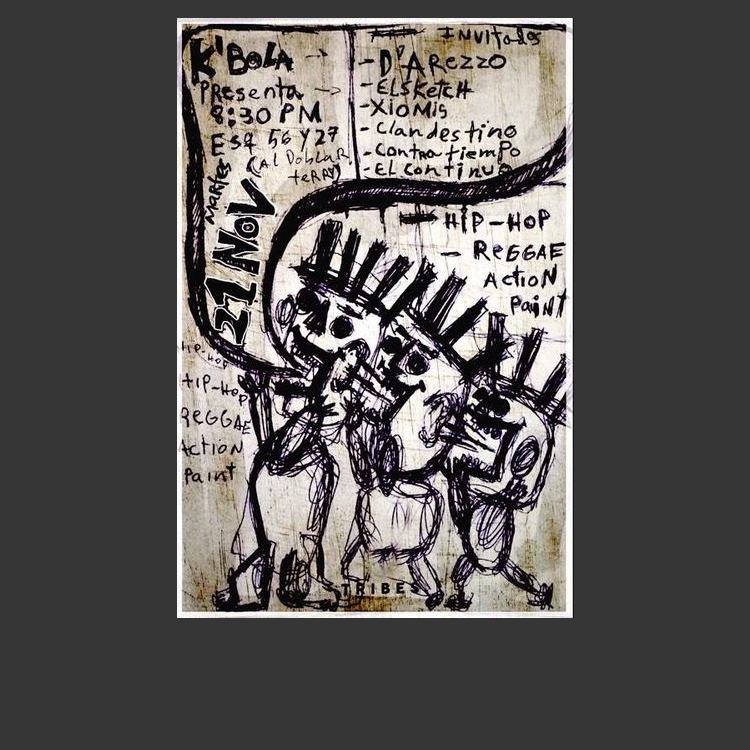 K'BOLA
Presenta
8:30 PM
ESQ 56 Y 27
(AL DoblaR
teRRY)
MaRtes
21 NOV
INVITADOS
-D'AREZZO
-ELSKETCH
-XIOMIS
-Clandestino
-Contratiempo
-EL Continuo
- HIP-HOP
- REGGAE
ACTION
Paint
HIP-HOP
HIP-HOP
REGGAE
ACTION
Paint
TRIBES